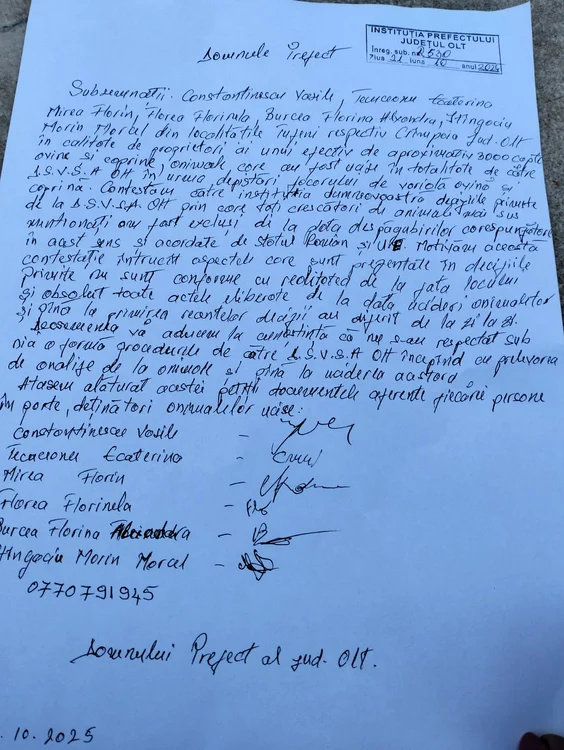 INSTITUȚIA PREFECTULUI
JUDEȚUL OLT
Înreg. sub. nr. 2530
Ziua 21 luna 10 anul 2025
Domnule Prefect
Subsemnatii: Constantinescu Vasile, Tecuceonu Ecaterina
Mirea Florin, Florea Florinela, Burcea Florina Alexandra,
Marin Marcel din localitățile respectiv Crîmpoia jud. Olt
în calitate de proprietari ai unui efectiv de aproximativ 3000 capete
ovine și caprine, animale care au fost ucise în totalitate de către
D.S.V.S.A Olt în urma depistării focarului de variola ovină și
caprină. Contestăm către instituția dumneavoastră deciziile primite
de la D.S.V.S.A Olt prin care toți crescătorii de animale mai sus
menționați au fost excluși de la plata despăgubirilor corespunzătoare
în acest sens și acordate de Statul Român și UE. Motivăm această
contestație întrucît aspectele care sunt prezentate în deciziile
primite nu sunt conforme cu realitatea de la fața locului
și absolut toate actele eliberate de la data uciderii animalelor
și pînă la primirea recentelor decizii au diferit de la zi la zi.
Deasemenea vă aducem la cunoștință că nu s-au respectat sub
nici o formă procedurile de către D.S.V.S.A Olt începînd cu prelevarea
de analize de la animale și pînă la uciderea acestora
Atasăm alăturat acestei petiții documentele aferente fiecărei persoane
în parte, deținători animalelor ucise:
Constantinescu Vasile -
Ecaterina -
Mirea Florin -
Florea Florinela -
Burcea Florina -
Marin Marcel -
0770791945
Domnului Prefect al jud. Olt.
. 10. 2025